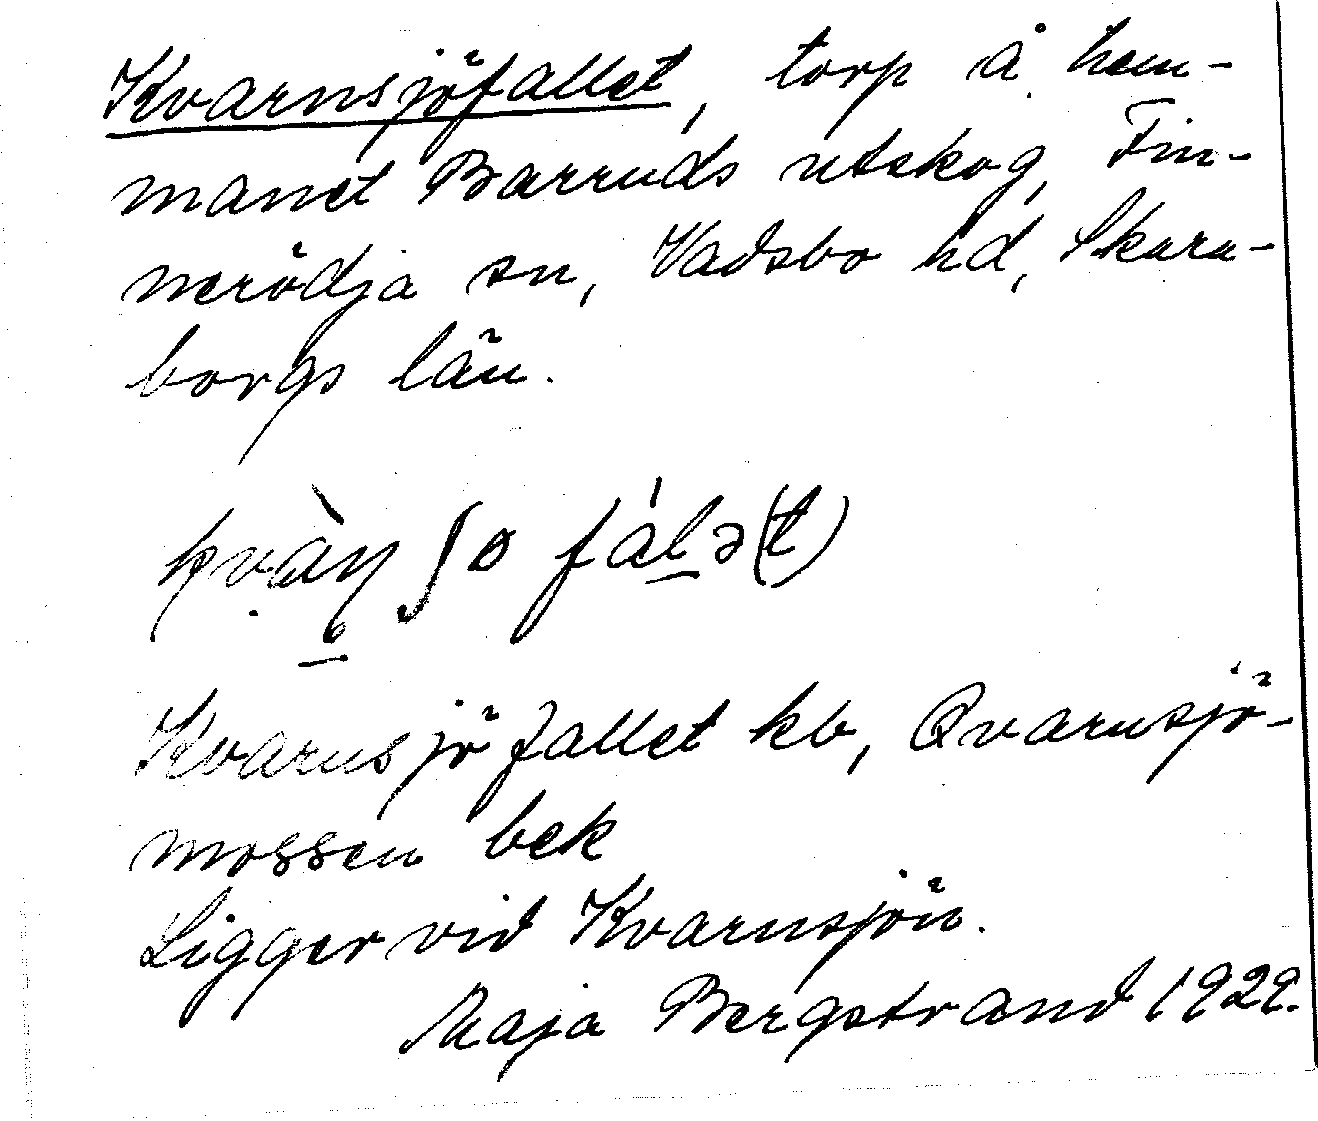 Kvarnsjöfallet, torp å hem-
manet Barruds utskog, Fin-
nerödja sn, Vadsbo hd, Skara-
borgs län.
kvàɳ ʃo fálə(t)
Kvarnsjöfallet kb, Qvarnsjö-
mossen bek
Ligger vid Kvarnsjön.
Maja Bergstrand 1929.